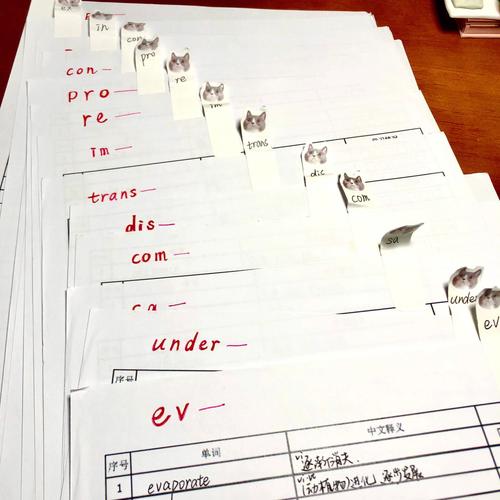 ex
in
con
pro
re
im
trans
dis
com
su
under
ev
con—
pro
re—
im—
trans—
dis—
com—
under—
序号
ev—
序号 单词 中文释义
1 evaporate vi 逐渐消失.